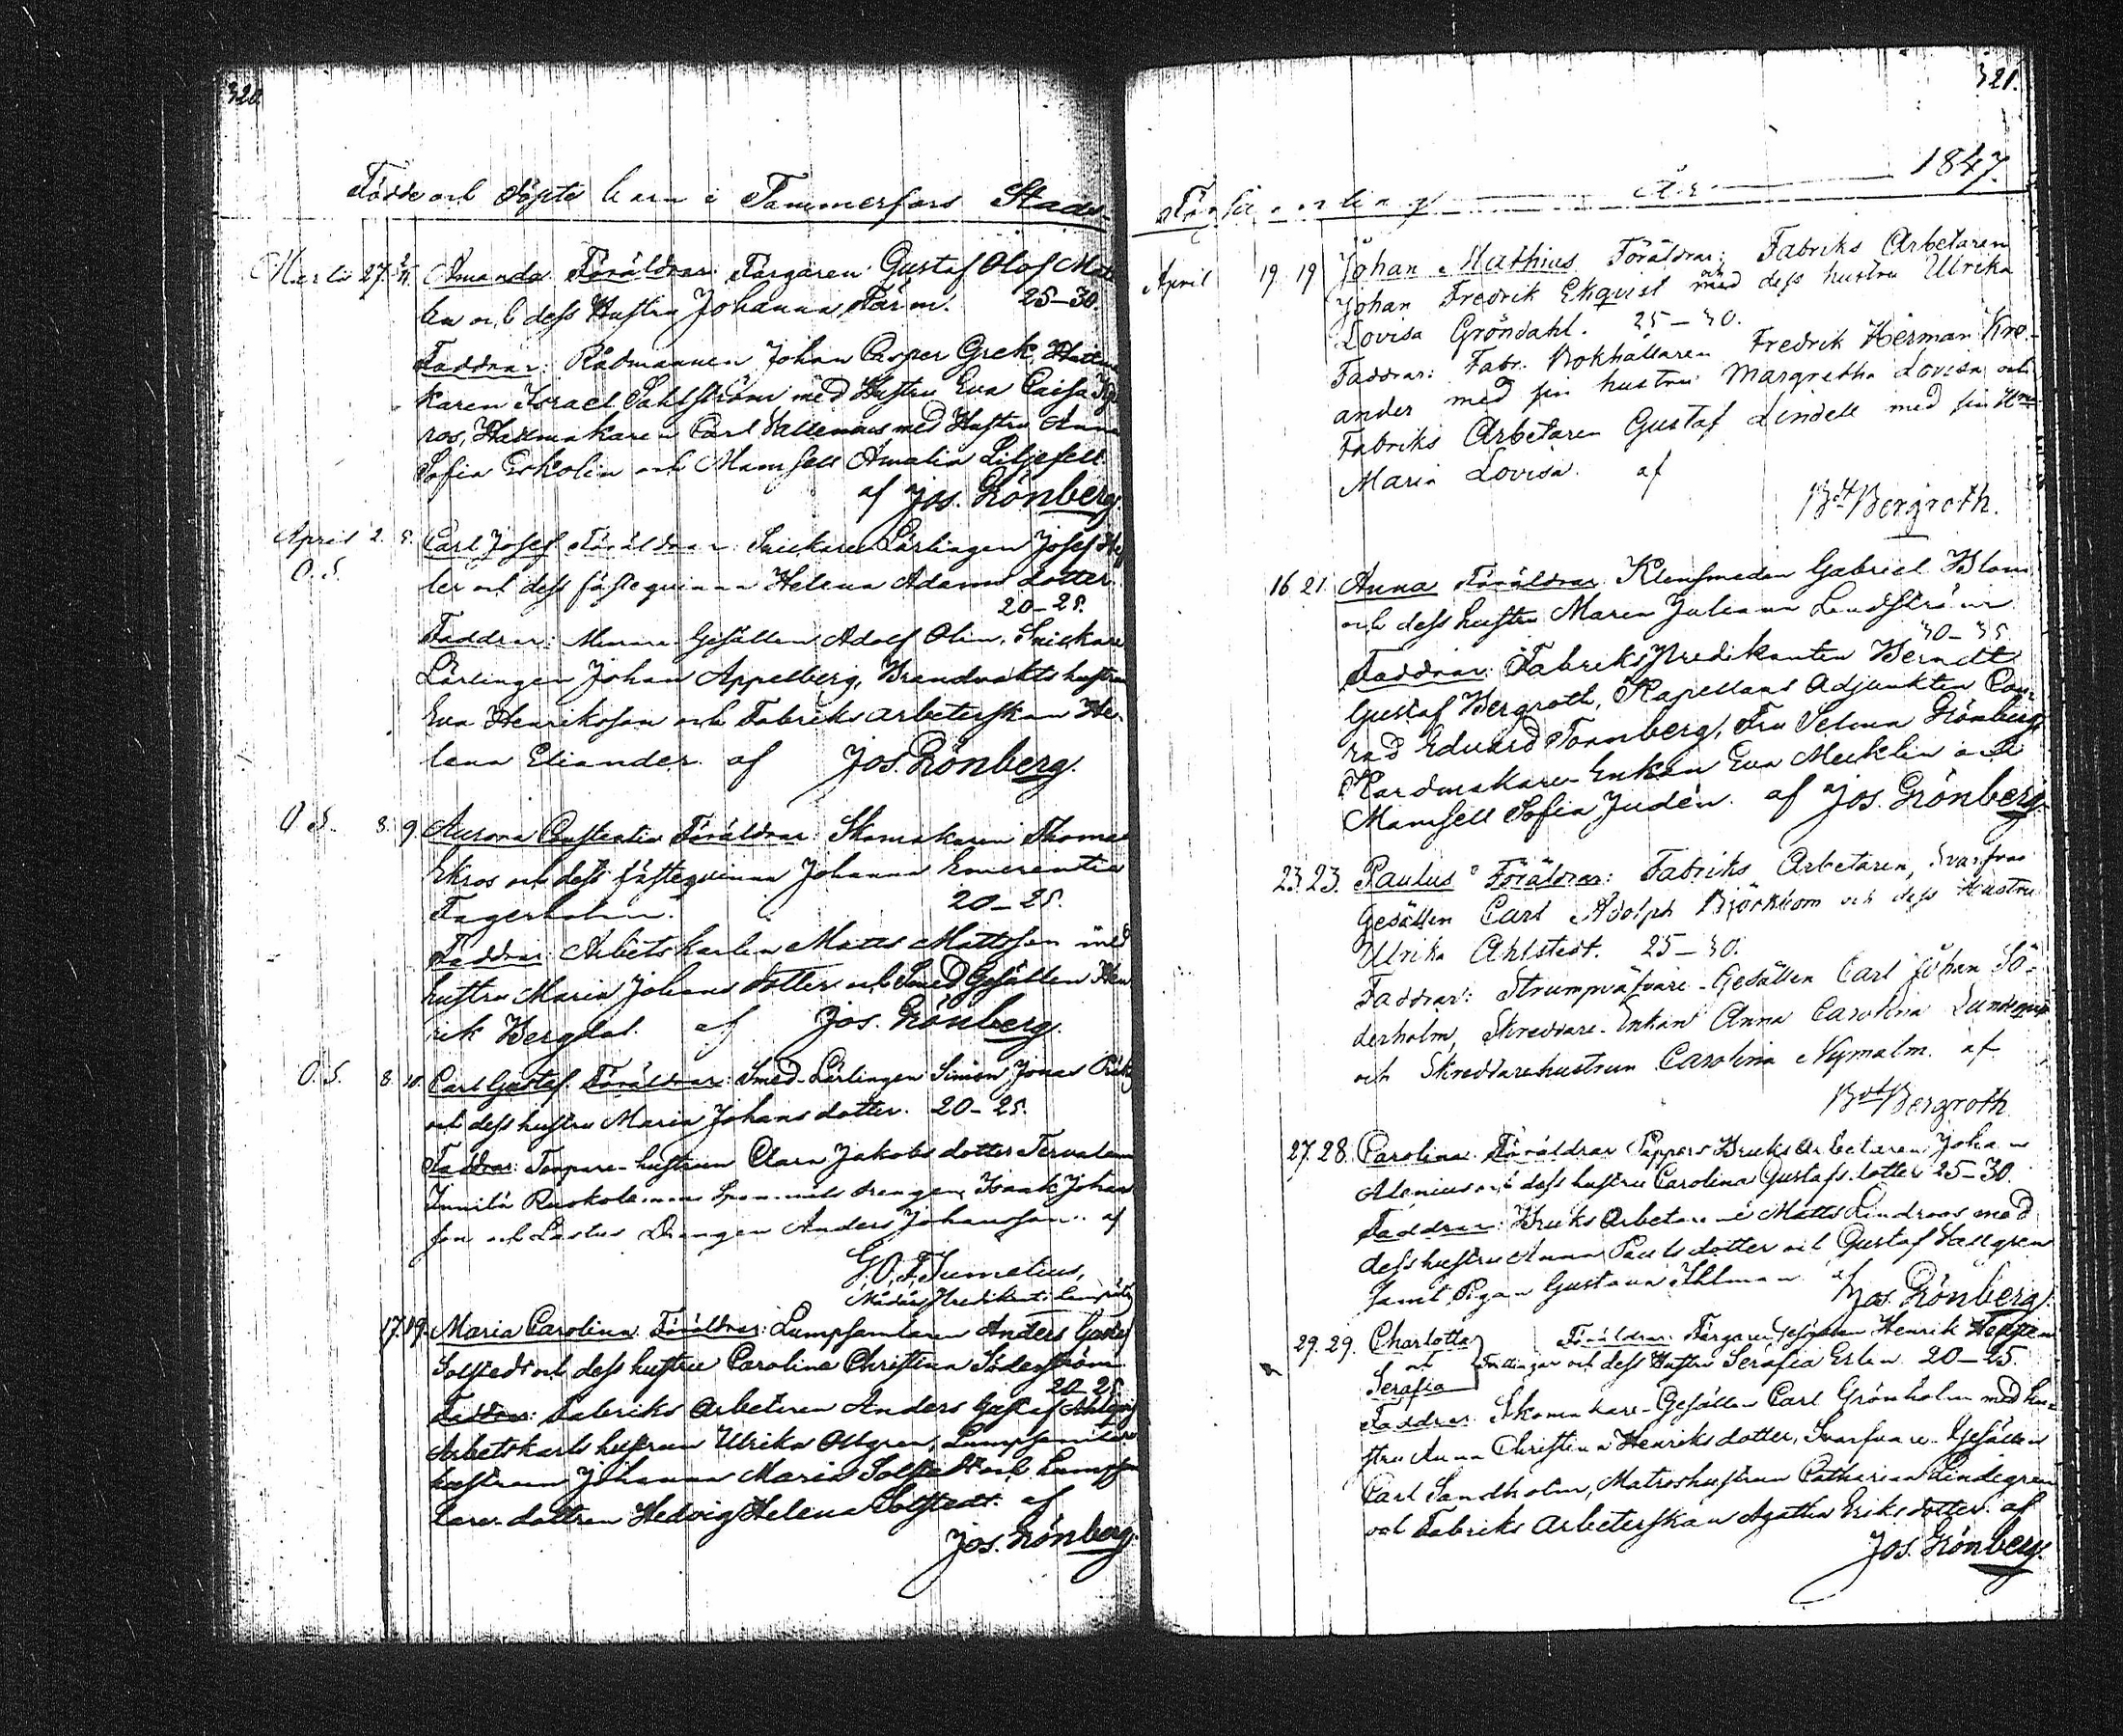 320.
Födde och Döpte barn i Tammerfors Stads-
Martii 27. Amanda. Föräldrar: Färgaren Gustaf Olof
och dess Hustru Johanna 25–30.
Faddrar: Rådmannen Johan Casper Grek,
karen Israel Sahlström med Hustru Eva Caisa
ros, Hattmakaren Carl med Hustru Anna
Sofia och Mamsell Amalia Liljefelt
af Jos. Grönberg.
April 2. 5. Carl Josef. Föräldrar: Snickare Lärlingen Josef
O. S. ler och dess fästequinna Helena Adams dotter
20–25.
Faddrar: Gesällen Adolf Olin, Snickare
Lärlingen Johan Appelberg, Brandvakts hustrun
Eva Henriksson och Fabriks arbeterskan He-
lena Eliander. af Jos. Grönberg.
O. S. 8. 9. Aurora Constantia Föräldrar: Skomakaren Thomas
Ekros och dess fästequinna Johanna Emerentia
Fagerholm. 20–25.
Faddrar: Arbetskarlen Matts Mattsson med
hustru Maria Johans dotter och Smed Gesällen Hen
rik Bergdal. af Jos. Grönberg.
O. S. 8. 10. Carl Gustaf. Föräldrar: Smed-Lärlingen Simon Jonas
och dess hustru Maria Johans dotter. 20–25.
Faddrar: hustrun Clara Jakobs dotter
drengen Isaak Johans
son och Drengen Anders Johansson. af
G. O. F. Tumelius,
17. 19. Maria Carolina. Föräldrar: Lumpsamlaren Anders Gustaf
Solstedt och dess hustru Carolina Christina Söderström
20–25
Faddrar: Fabriks Arbetaren Anders Gustaf
Arbetskarls hustrun Ulrika Ollgren, Lumpsamlare
hustrun Johanna Maria Solstedt och
lare dottren Hedvig Helena Solstedt. af
Jos. Grönberg.
321.
Församling År 1847.
April 19. 19 Johan Mathias Föräldrar: Fabriks Arbetaren
Johan Fredrik Ekqvist och dess hustru Ulrika
Lovisa Gröndahl. 25–30.
Faddrar: Fabr. Bokhållaren Fredrik Herman
ander med sin hustru Margretha Lovisa och
Fabriks Arbetaren Gustaf Lindell med sin
Maria Lovisa. af
Bdt Bergroth.
16 21. Anna Föräldrar: Klensmeden Gabriel Blom
och dess hustru Maria Juliana Lundström
30–35
Faddrar: Fabriks Predikanten Berndt
Gustaf Bergroth, Kapellans Adjunkten Con-
rad Eduard Tornberg, Fru Selma Grönberg
Kardmakare Enkan Eva Mecklin och
Mamsell Sofia Judén. af Jos. Grönberg.
23. 23. Paulus Föräldrar: Fabriks Arbetaren, Svarfvar
Gesällen Carl Adolph Björkbom och dess Hustru
Ulrika Ahlstedt. 25–30.
Faddrar: Strumpväfvare-Gesällen Carl Johan Sö-
derholm, Skreddare-Enkan Anna Carolina
och Skreddarehustrun Carolina Nymalm. af
Bdt Bergroth
27. 28. Carolina. Föräldrar Pappers Bruks Arbetaren Johan
Alenius och dess hustru Carolina Gustafs dotter 25–30.
Faddrar: Bruks Arbetarne Matts Lindroos med
dess hustru Anna Pauls dotter och Gustaf Hallgren
samt Pigan Gustava Ihlman af
Jos. Grönberg.
29. 29. Charlotta Föräldrar: Färgare Gesällen Henrik
och Tvillingar och dess Hustru Serafia 20–25.
Serafia
Faddrar: Skomakare-Gesällen Carl Grönholm med hu-
stru Anna Christina Henriks dotter, Svarfvare-Gesällen
Carl Sandholm, Matroshustrun Catharina Lindegren
och Fabriks arbeterskan Agatha Eriks dotter. af
Jos. Grönberg.